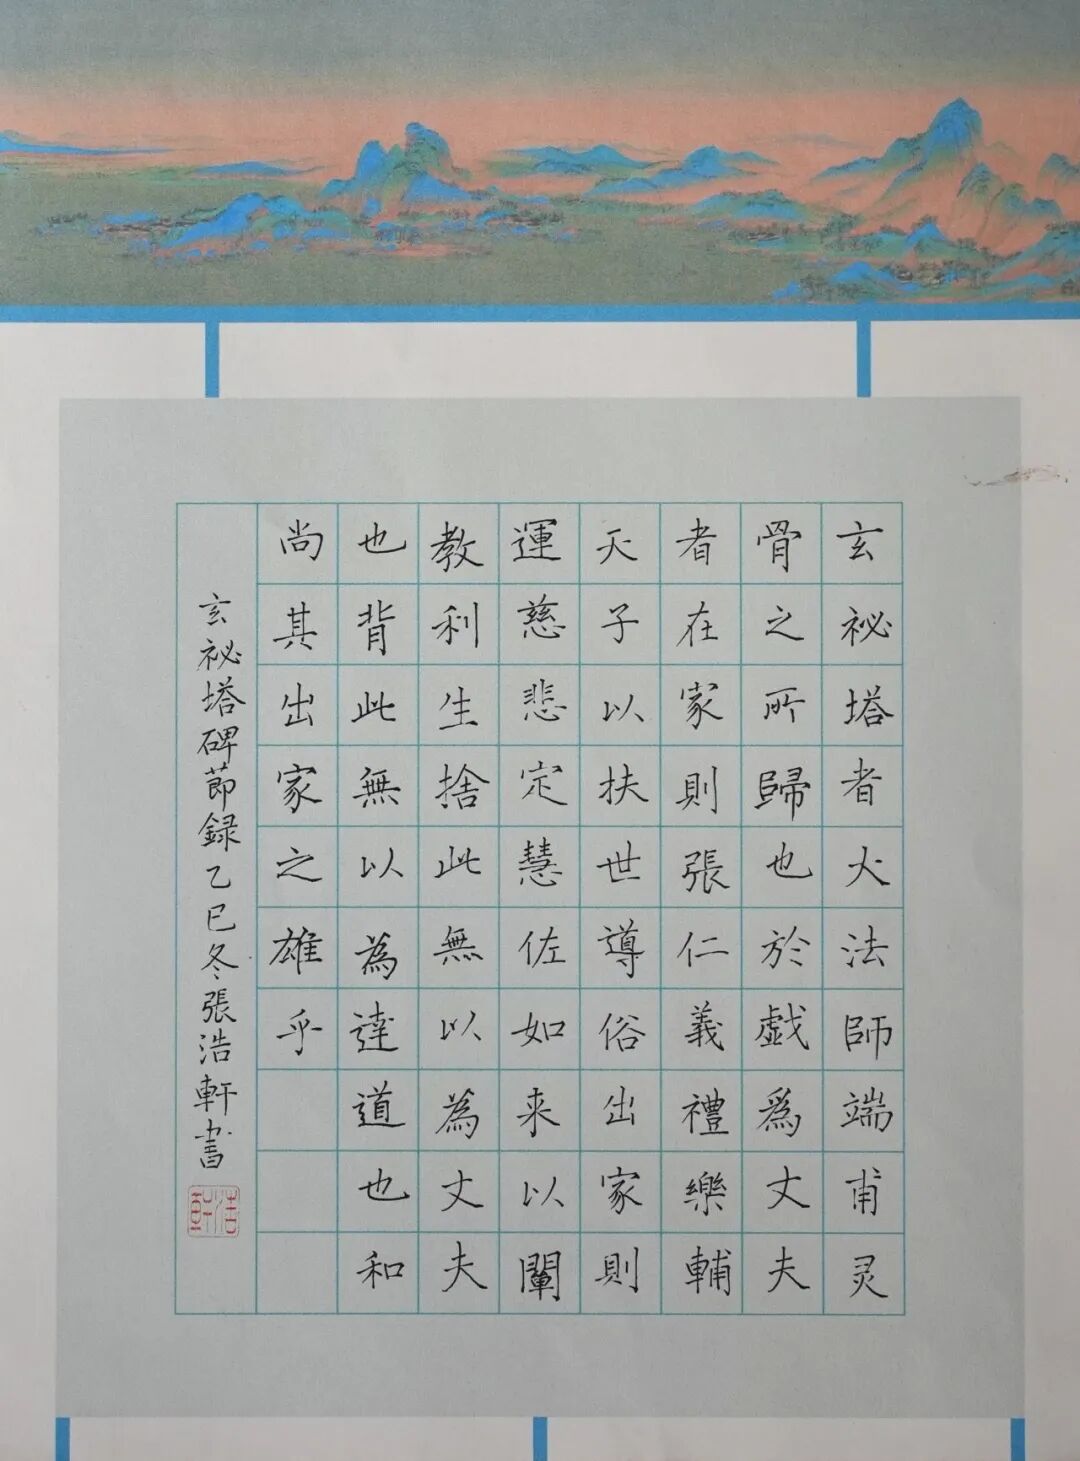 玄祕塔者大法師端甫灵
骨之所歸也於戯爲丈夫
者在家則張仁義禮樂輔
天子以扶世導俗出家則
運慈悲定慧佐如来以闡
教利生捨此無以為丈夫
也背此無以為達道也和
尚其出家之雄乎
玄祕塔碑節録乙巳冬張浩軒書
浩軒